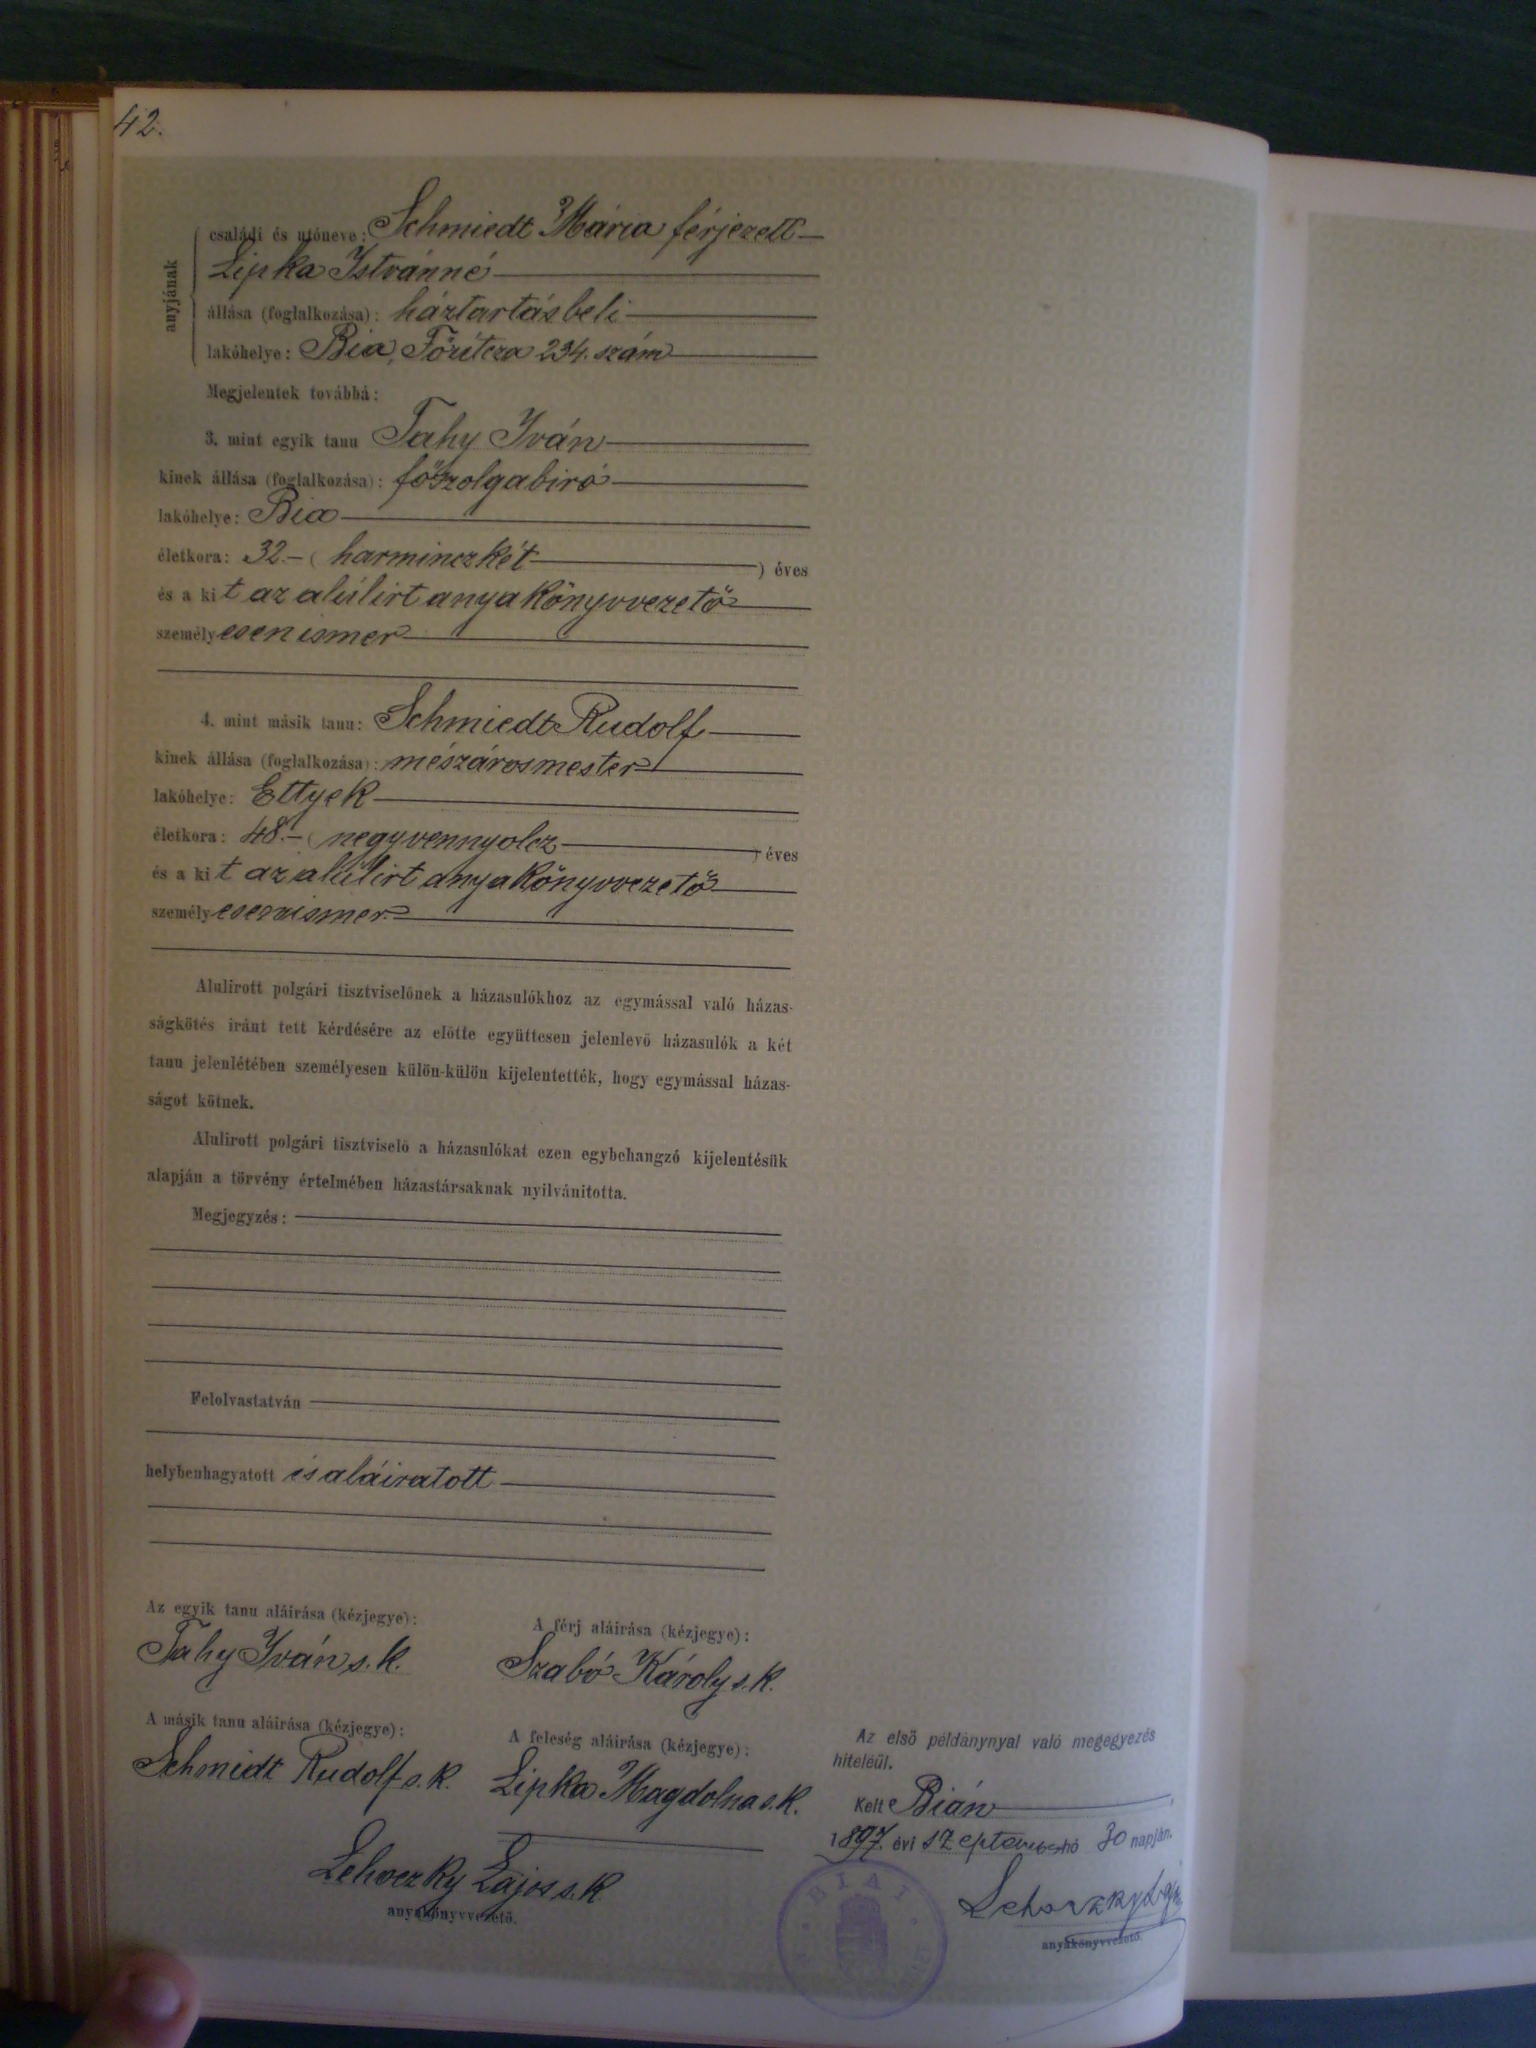 42.
anyjának
családi és utóneve: Schmiedt Mária férjezett
Lipka Istvánné
állása (foglalkozása): háztartásbeli
lakóhelye: Bia, Főútcza 234. szám
Megjelentek továbbá:
3. mint egyik tanu Tahy Iván
kinek állása (foglalkozása): főszolgabiró
lakóhelye: Bia
életkora: 32.– ( harminczkét ) éves
és a kit az alúlirt anyakönyvvezető
személyesen ismer
4. mint másik tanu: Schmiedt Rudolf
kinek állása (foglalkozása): mészárosmester
lakóhelye: Ettyek
életkora: 48.– ( negyvennyolcz ) éves
és a kit az alúlirt anyakönyvvezető
személyesen ismer.
Alulirott polgári tisztviselőnek a házasulókhoz az egymással való házas-
ságkötés iránt tett kérdésére az előtte együttesen jelenlevő házasulók a két
tanu jelenlétében személyesen külön-külön kijelentették, hogy egymással házas-
ságot kötnek.
Alulirott polgári tisztviselő a házasulókat ezen egybehangzó kijelentésük
alapján a törvény értelmében házastársaknak nyilvánitotta.
Megjegyzés:
Felolvastatván
helybenhagyatott és aláiratott
Az egyik tanu aláirása (kézjegye):
Tahy Iván s. k.
A férj aláirása (kézjegye):
Szabó Károly s. k.
A másik tanu aláirása (kézjegye):
Schmidt Rudolf s. k.
A feleség aláirása (kézjegye):
Lipka Magdolna s. k.
Lehoczky Lajos s. k
anyakönyvvezető.
Az első példánynyal való megegyezés
hiteléűl.
Kelt Bián
1897. évi szeptember hó 30 napján.
Lehoczky Lajos
anyakönyvvezető.
BIAI